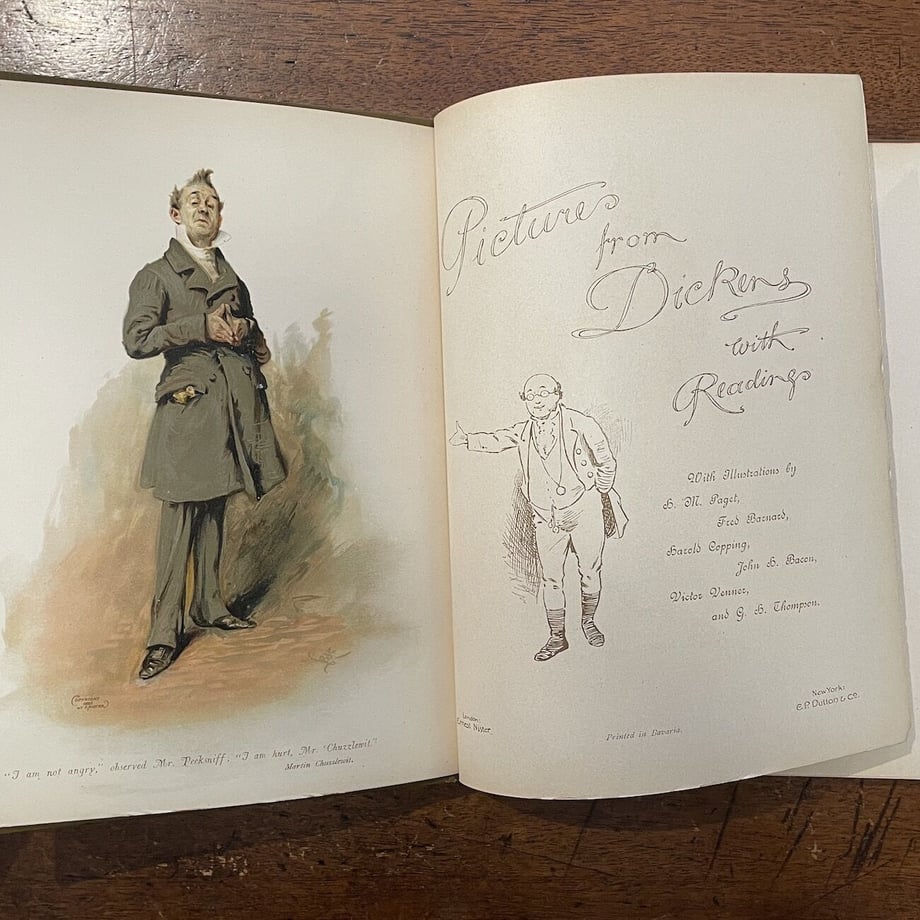 "I am not angry," observed Mr. Pecksniff; "I am hurt, Mr. Chuzzlewit."
Martin Chuzzlewit.
Pictures
from
Dickens
with
Readings
With Illustrations by
H. M. Paget,
Fred Barnard,
Harold Copping,
John H. Bacon,
Victor Venner,
and G. H. Thompson.
London:
Ernest Nister.
Printed in Bavaria.
New York:
E.P. Dutton & Co.